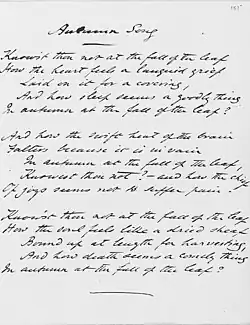 Autumn Song
Know'st thou not at the fall of the leaf
How the heart feels a languid grief
Laid on it for a covering,
And how sleep seems a goodly thing
In autumn at the fall of the leaf?
And how the swift beat of the brain
Falters because it is in vain
In autumn at the fall of the leaf
Knowest thou not? — and how the chief
Of joys seems not to suffer pain!
Know'st thou not at the fall of the leaf
How the soul feels like a dried sheaf
Bound up at length for harvesting,
And how death seems a comely thing
In autumn at the fall of the leaf?